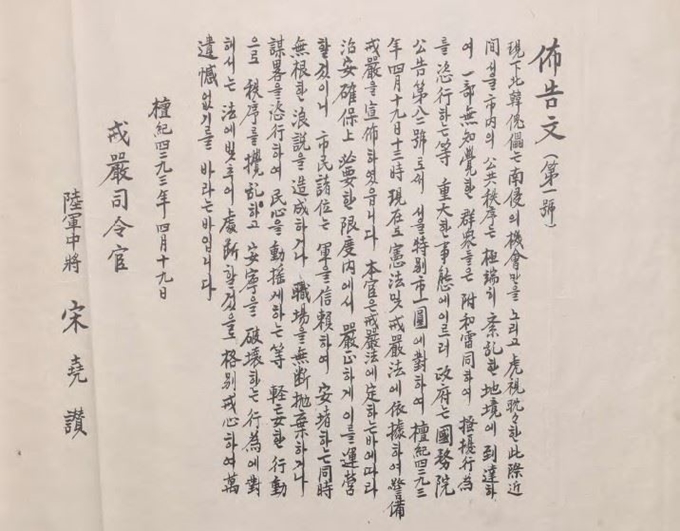 佈告文(第一號)
現下北韓傀儡는 南侵의 機會만을 노리고 虎視耽々한 此際 近
間 서울市内의 公共秩序는 極端히 紊乱한 地境에 到達하
여 一部 無知覺한 群衆들은 附和雷同하여 搔擾行為
를 恣行하는等 重大한 事態에 이르러 政府는 國務院
公告第八二號로써 서울特別市一圓에 對하여 檀紀四二九三
年四月十九日十三時 現在로 憲法 및 戒嚴法에 依據하여 警備
戒嚴을 宣佈하엿읍니다 本官은 戒嚴法에 定하는바에따라
治安確保上 必要한 限度内에서 嚴正하게 이를 運營
할것이니 市民諸位는 軍을 信賴하여 安堵하는同時
無根한 浪説을 造成하거나 職場을 無断抛棄하거나
謀畧을 恣行하여 民心을 動搖케하는等 軽妄한 行動
으로 秩序를 攪乱하고 安寧을 破壞하는 行為에 對
해서는 法에 빛추어 處断할것을 格别 戒心하여 萬
遺憾없기를 바라는바입니다
檀紀四二九三年 四月十九日
戒嚴司令官
陸軍中將 宋堯讚